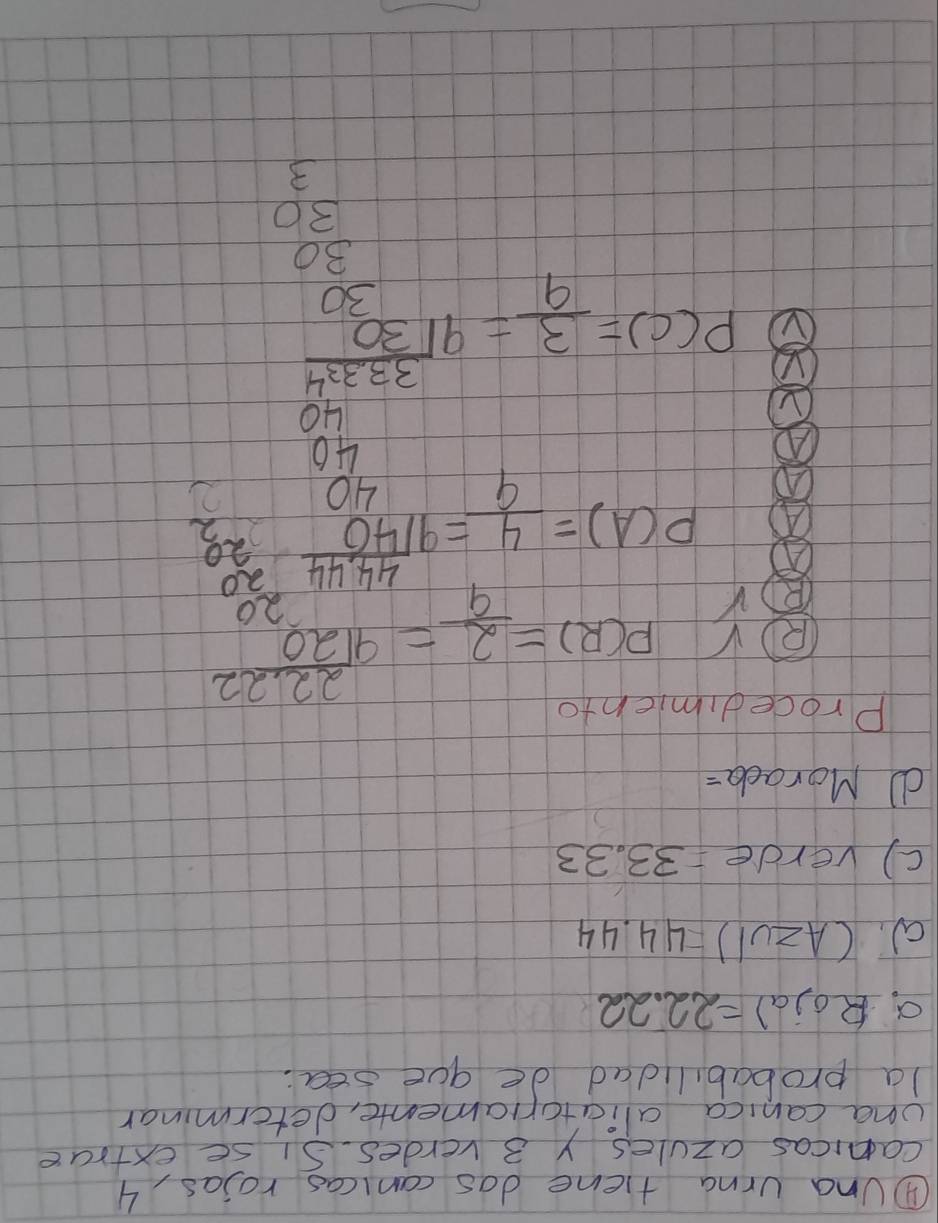 ④ Una urna tiene dos canicas rojas, 4
canicas azules y 3 verdes. Si se extrae
una canica aliatoriamente, determinar
la probabilidad de que sea:
a. Roja) = 22.22
a). (Azul) = 44.44
c) verde = 33.33
d) Morada =
Procedimiento
22.22
Ⓡ √ P(R) = 2/9 = 9|20
Ⓡ √ 20
Ⓐ 44.44 20
Ⓐ P(A) = 4/9 = 9|40 20
2
Ⓐ 40
Ⓐ 40
Ⓥ 40
Ⓥ 33.334
Ⓥ P(C) = 3/9 = 9|30
30
30
30
3